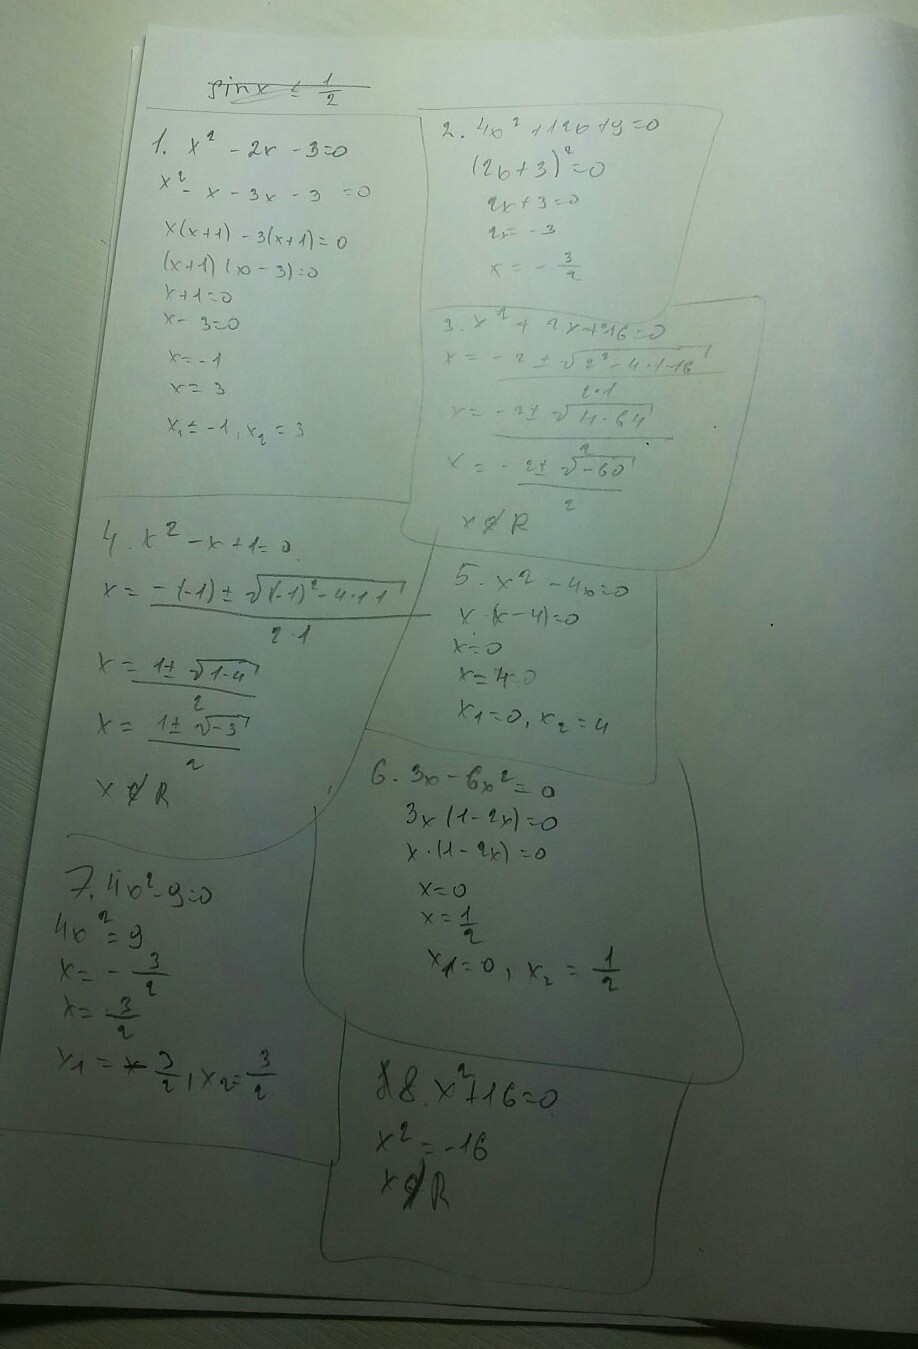 sinx = 1/2
1. x² - 2x - 3=0
x² - x - 3x - 3 =0
x(x+1) - 3(x+1)=0
(x+1) (x - 3)=0
x+1=0
x - 3=0
x=-1
x= 3
x₁=-1, x₂ = 3
2. 4x² +12x+9=0
(2x+3)²=0
2x+3=0
2x=-3
x = - 3/2
3. x² + 2x+16=0
x = - 2 ± √2²-4·1·16 / 2·1
x= -2± √4-64 / 2
x = - 2± √-60 / 2
x ∉ R
4. x² - x+1=0
x= -(-1) ± √(-1)²-4·1·1 / 2·1
x= 1± √1-4 / 2
x= 1± √-3 / 2
x ∉ R
5. x² - 4x=0
x ·(x-4)=0
x=0
x-4=0
x1=0, x₂=4
6. 3x - 6x²=0
3x (1-2x)=0
x·(1-2x)=0
x=0
x=1/2
x1=0, x₂ = 1/2
7. 4x²-9=0
4x²=9
x= - 3/2
x= 3/2
x1 = - 3/2, x2= 3/2
8. x²+16=0
x²=-16
x ∉ R